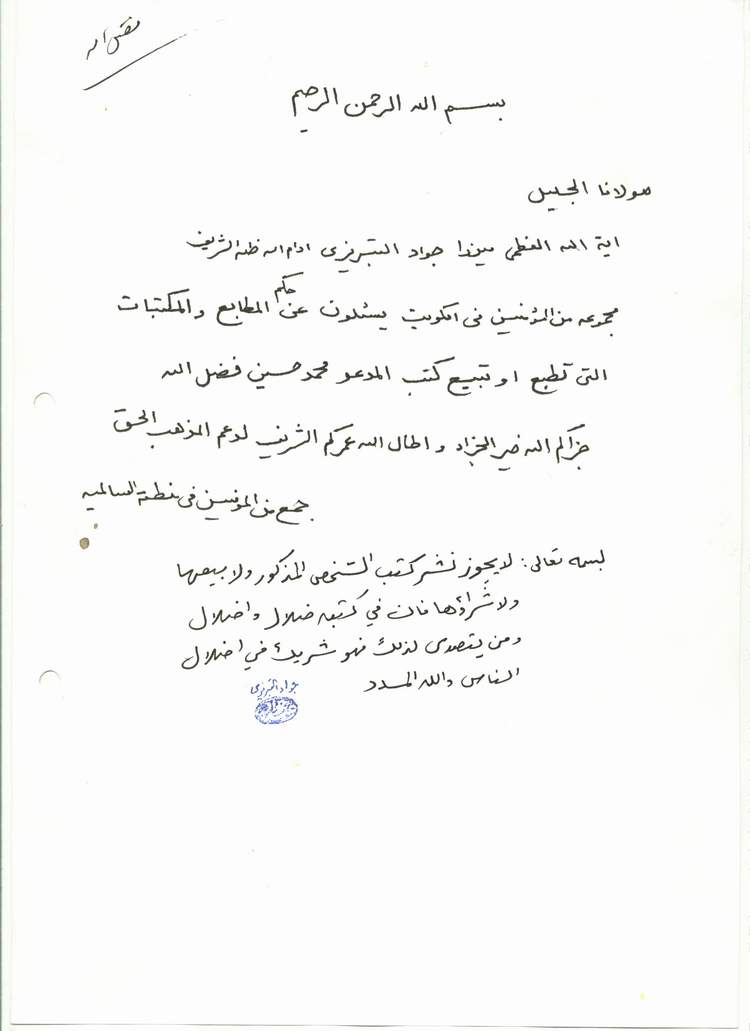 فضل الله
بسم الله الرحمن الرحيم
مولانا الجليل
اية الله العظمى ميرزا جواد التبريزي ادام الله ظله الشريف
مجموعه من المؤمنين في الكويت يسئلون عن حكم المطابع والمكتبات
التي تطبع او تبيع كتب المدعو محمد حسين فضل الله
جزاكم الله خير الجزاء و اطال الله عمركم الشريف لدعم المذهب الحق
جمع من المؤمنين في منطقة السالميه
بسمه تعالى: لا يجوز نشر كتب الشخص المذكور ولا بيعها
ولا شراؤها فان في كتبه ضلال واضلال
ومن يتصدى لذلك فهو شريك في اضلال
الناس والله المسدد
جواد التبريزي